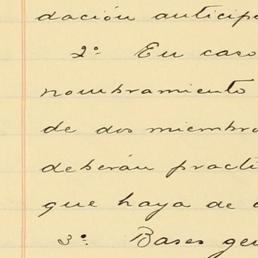 dación anticipa
2º En caso
nombramiento
de dos miembro
deberán practi
que haya de
3º Bases ge